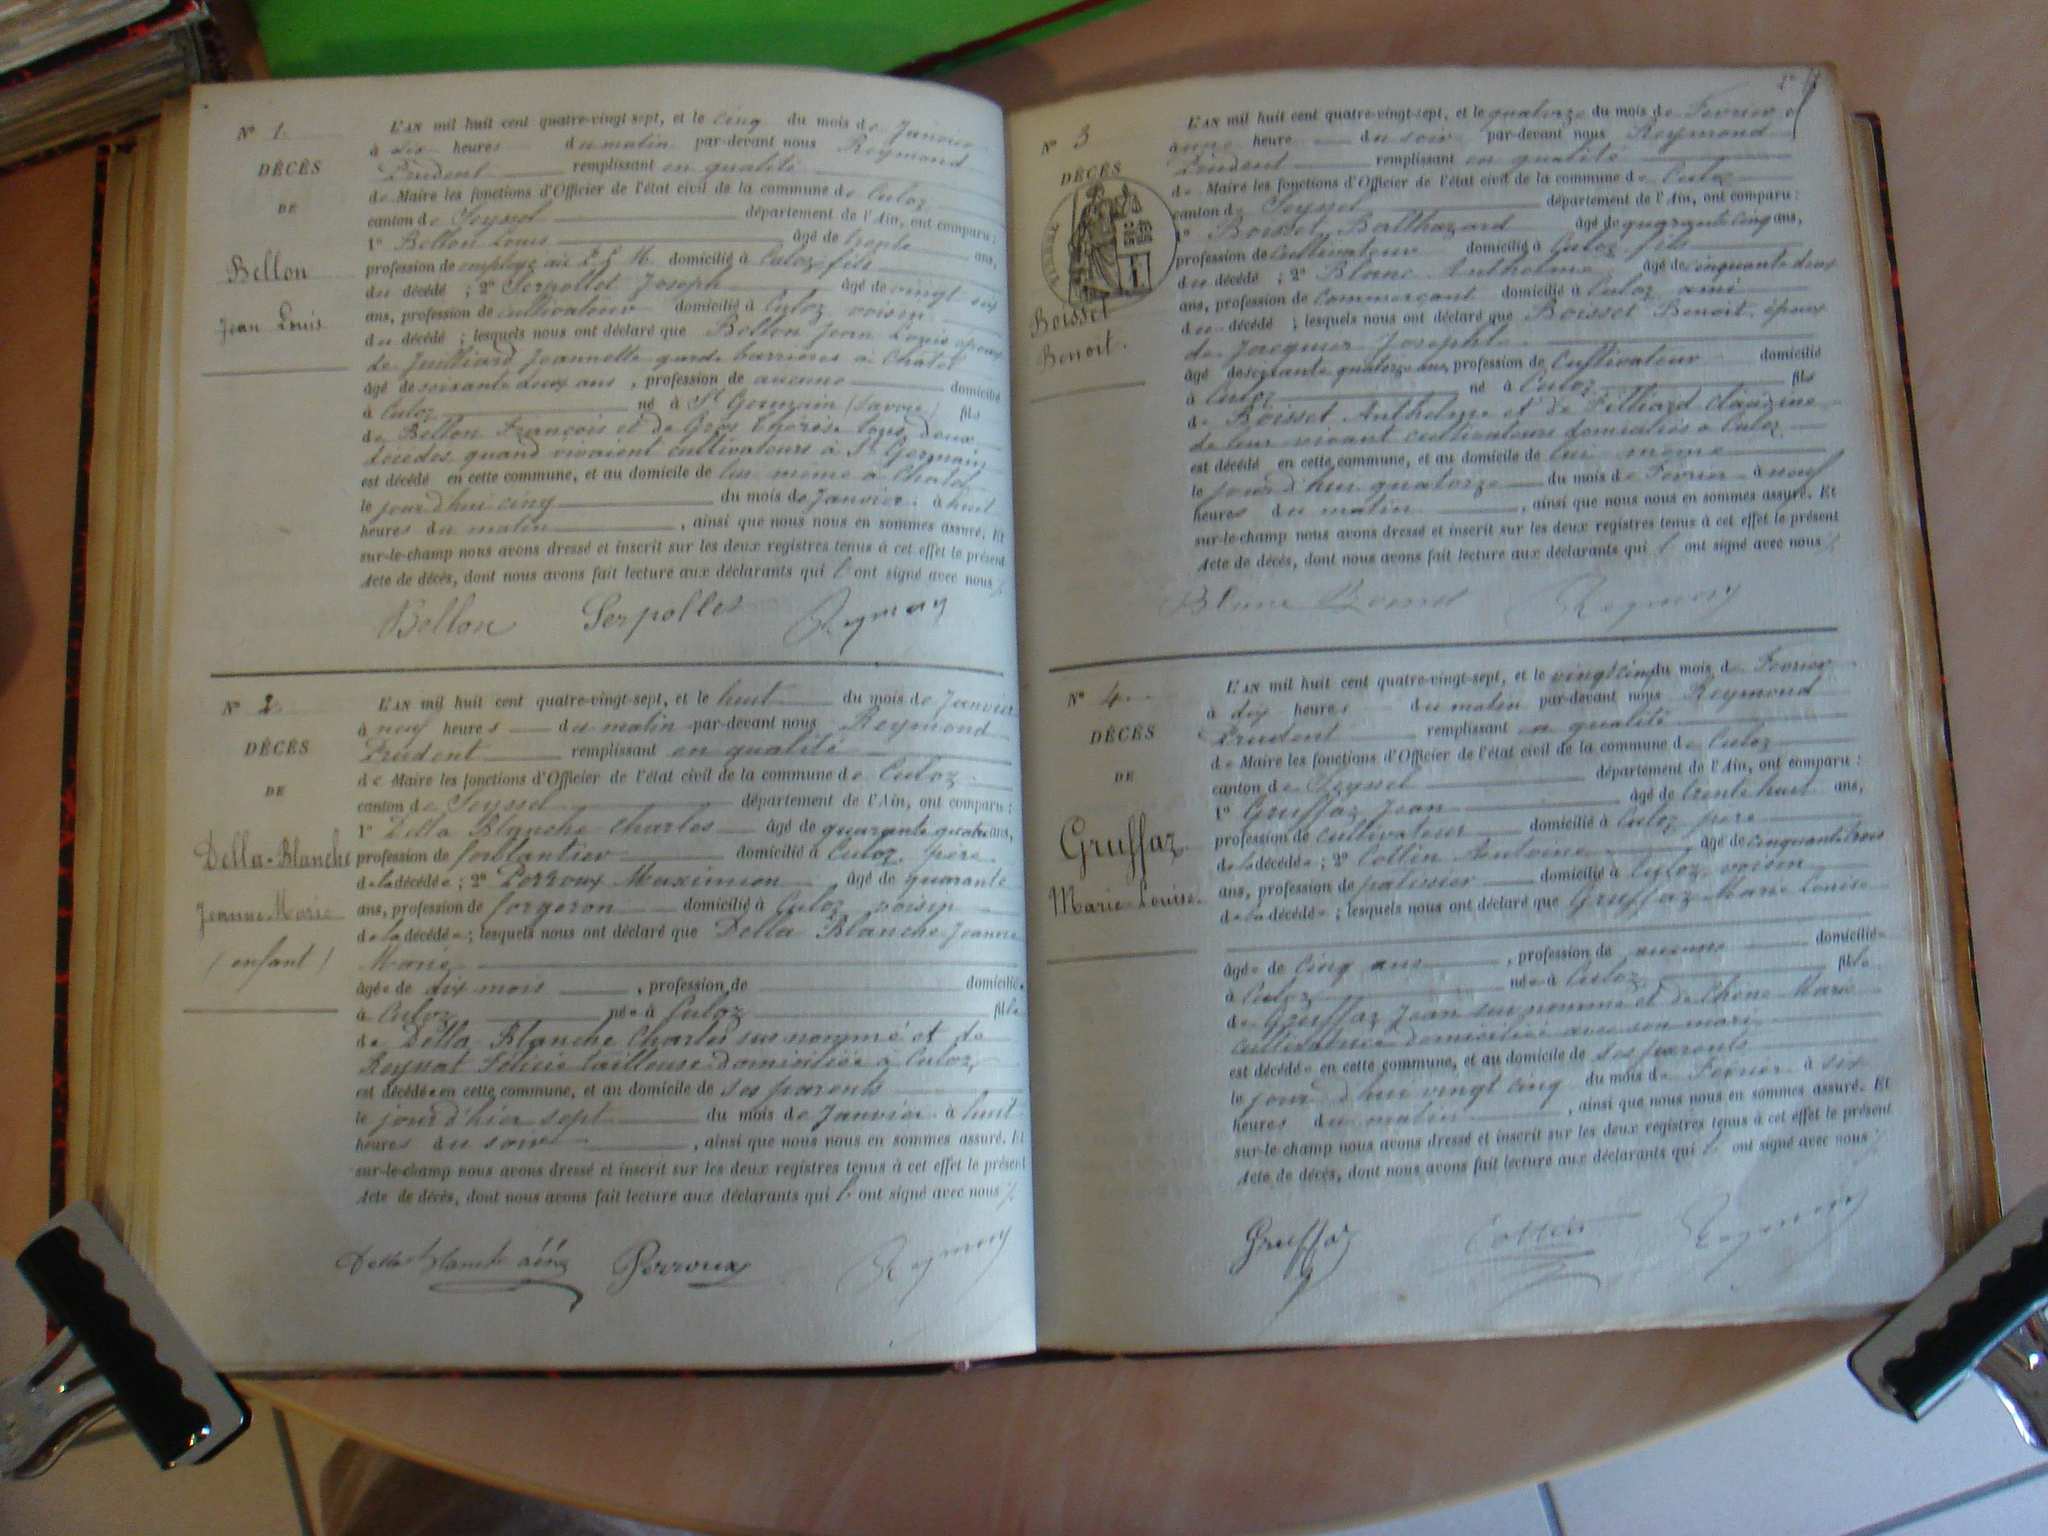 N° 1.
DÉCÈS
DE
Bellon
Jean Louis
L'AN mil huit cent quatre-vingt-sept, et le cinq du mois de Janvier
à dix heures du matin par-devant nous Reymond
Prudent remplissant en qualité
de Maire les fonctions d'Officier de l'état civil de la commune de Culoz
canton de Seyssel département de l'Ain, ont comparu :
1° Bellon Louis âgé de trente ans,
profession de employé au P. L. M. domicilié à Culoz fils
du décédé ; 2° Serpollet Joseph âgé de vingt six
ans, profession de cultivateur domicilié à Culoz voisin
du décédé ; lesquels nous ont déclaré que Bellon Jean Louis époux
de Juilliard Jeannette garde barrières à Chatel
âgé de soixante deux ans, profession de aucune domicilié
à Culoz né à St Germain (Savoie) fils
de Bellon François et de Gros Thérèse tous deux
décédés quand vivaient cultivateurs à St Germain
est décédé en cette commune, et au domicile de lui même à Chatel
le jourd'hui cinq du mois de Janvier à huit
heures du matin, ainsi que nous nous en sommes assuré. Et
sur-le-champ nous avons dressé et inscrit sur les deux registres tenus à cet effet le présent
Acte de décès, dont nous avons fait lecture aux déclarants qui l' ont signé avec nous
Bellon Serpollet Reymond
N° 2
DÉCÈS
DE
Della-Blanche
Jeanne Marie
(enfant)
L'AN mil huit cent quatre-vingt-sept, et le huit du mois de Janvier
à neuf heures du matin par-devant nous Reymond
Prudent remplissant en qualité
de Maire les fonctions d'Officier de l'état civil de la commune de Culoz
canton de Seyssel département de l'Ain, ont comparu :
1° Della Blanche Charles âgé de quarante quatre ans,
profession de ferblantier domicilié à Culoz père
de la décédée ; 2° Perroux Maximion âgé de quarante
ans, profession de forgeron domicilié à Culoz voisin
de la décédée ; lesquels nous ont déclaré que Della Blanche Jeanne
Marie
âgée de dix mois, profession de domiciliée
à Culoz née à Culoz fille
de Della Blanche Charles sus nommé et de
Reynat Félicie tailleuse domiciliée à Culoz
est décédée en cette commune, et au domicile de ses parents
le jour d'hier sept du mois de Janvier à huit
heures du soir, ainsi que nous nous en sommes assuré. Et
sur-le-champ nous avons dressé et inscrit sur les deux registres tenus à cet effet le présent
Acte de décès, dont nous avons fait lecture aux déclarants qui l' ont signé avec nous
Della Blanche aîné Perroux Reymond
N° 3
DÉCÈS
TIMBRE
Boisset
Benoit.
L'AN mil huit cent quatre-vingt-sept, et le quatorze du mois de Fevrier
à une heure du soir par-devant nous Reymond
Prudent remplissant en qualité
de Maire les fonctions d'Officier de l'état civil de la commune de Culoz
canton de Seyssel département de l'Ain, ont comparu :
1° Boisset Balthazard âgé de quarante cinq ans,
profession de cultivateur domicilié à Culoz fils
du décédé ; 2° Blanc Anthelme âgé de cinquante deux
ans, profession de commerçant domicilié à Culoz ami
du décédé ; lesquels nous ont déclaré que Boisset Benoit époux
de Jacquier Josephte
âgé de soixante quatorze ans, profession de Cultivateur domicilié
à Culoz né à Culoz fils
de Boisset Anthelme et de Filliard Claudine
de leur vivant cultivateurs domiciliés à Culoz
est décédé en cette commune, et au domicile de lui même
le jourd'hui quatorze du mois de Fevrier à neuf
heures du matin, ainsi que nous nous en sommes assuré. Et
sur-le-champ nous avons dressé et inscrit sur les deux registres tenus à cet effet le présent
Acte de décès, dont nous avons fait lecture aux déclarants qui l' ont signé avec nous
Blanc Reymond
N° 4.
DÉCÈS
DE
Gruffaz
Marie-Louise.
L'AN mil huit cent quatre-vingt-sept, et le vingt cinq du mois de Fevrier
à dix heures du matin par-devant nous Reymond
Prudent remplissant en qualité
de Maire les fonctions d'Officier de l'état civil de la commune de Culoz
canton de Seyssel département de l'Ain, ont comparu :
1° Gruffaz Jean âgé de trente huit ans,
profession de cultivateur domicilié à Culoz père
de la décédée ; 2° Cottin Antoine âgé de cinquante trois
ans, profession de patissier domicilié à Culoz voisin
de la décédée ; lesquels nous ont déclaré que Gruffaz Marie Louise
âgée de cinq ans, profession de aucune domiciliée
à Culoz née à Culoz fille
de Gruffaz Jean sus nommé et de Chêne Marie
cultivatrice domiciliée avec son mari
est décédée en cette commune, et au domicile de ses parents
le jour d'hui vingt cinq du mois de Fevrier à six
heures du matin, ainsi que nous nous en sommes assuré. Et
sur-le-champ nous avons dressé et inscrit sur les deux registres tenus à cet effet le présent
Acte de décès, dont nous avons fait lecture aux déclarants qui l' ont signé avec nous
Gruffaz Cottin Reymond